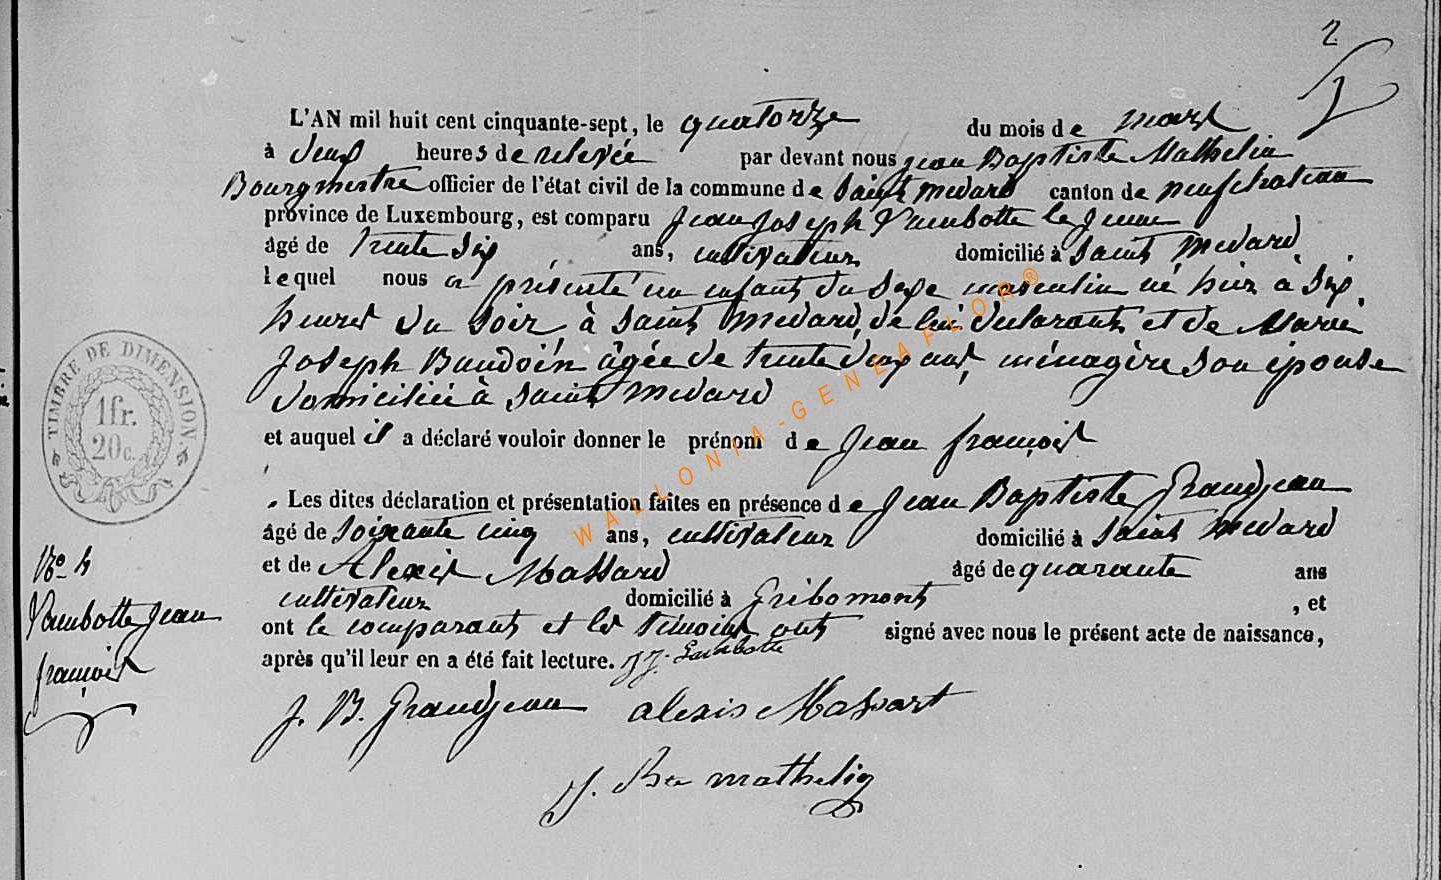 2
L'AN mil huit cent cinquante-sept, le quatorze du mois de mars
à deux heures de relevée par devant nous jean Baptiste Mathelin
Bourgmestre officier de l'état civil de la commune de Saint medard canton de neufchateau
province de Luxembourg, est comparu Jean Joseph Lambotte le jeune
âgé de trente six ans, cultivateur domicilié à Saint medard
lequel nous a présenté un enfant du sexe masculin né hier à six
heures du soir à Saint medard, de lui déclarant et de Marie
Joseph Baudoin âgée de trente deux ans, ménagère son épouse
domiciliée à Saint medard
et auquel il a déclaré vouloir donner le prénom de Jean françois
Les dites déclaration et présentation faites en présence de Jean Baptiste Grandjean
âgé de soixante cinq ans, cultivateur domicilié à Saint medard
et de Alexis Massard âgé de quarante ans
cultivateur domicilié à Gribomont , et
ont le comparant et les témoins ont signé avec nous le présent acte de naissance,
après qu'il leur en a été fait lecture. J J. Lambotte
J. B. Grandjean alexis Massart
J. Bte mathelin
TIMBRE DE DIMENSION.
1fr.
20c.
No 4
Lambotte Jean
françois
WALLONIA-GENEAFLOR®